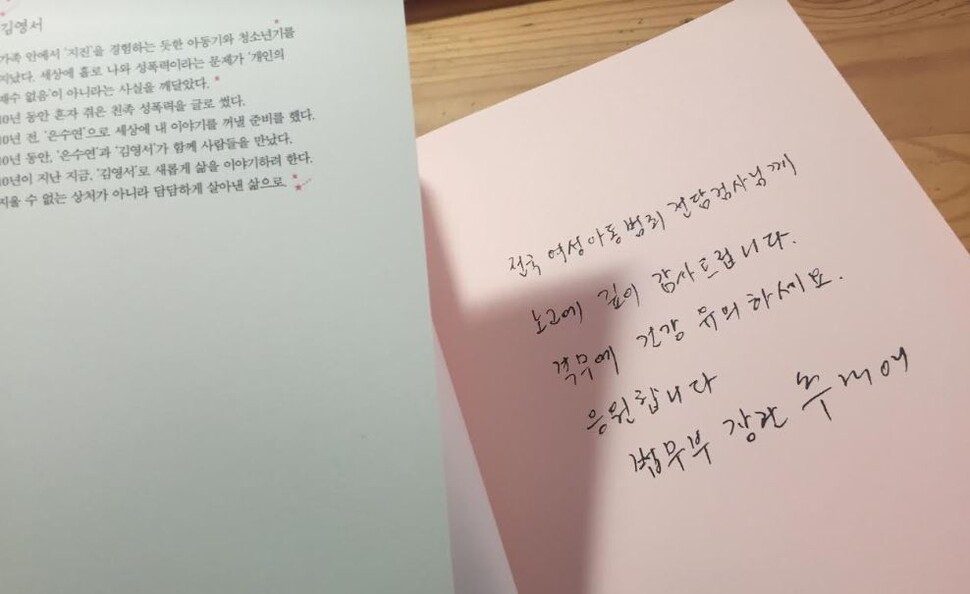 김영서
가족 안에서 '지진'을 경험하는 듯한 아동기와 청소년기를
지났다. 세상에 홀로 나와 성폭력이라는 문제가 '개인의
재수 없음'이 아니라는 사실을 깨달았다.
10년 동안 혼자 겪은 친족 성폭력을 글로 썼다.
10년 전, '은수연'으로 세상에 내 이야기를 꺼낼 준비를 했다.
10년 동안, '은수연'과 '김영서'가 함께 사람들을 만났다.
10년이 지난 지금, '김영서'로 새롭게 삶을 이야기하려 한다.
지울 수 없는 상처가 아니라 담담하게 살아낸 삶으로.
전국 여성아동범죄 전담검사님께
노고에 깊이 감사드립니다.
격무에 건강 유의하세요.
응원합니다
법무부 장관 추미애